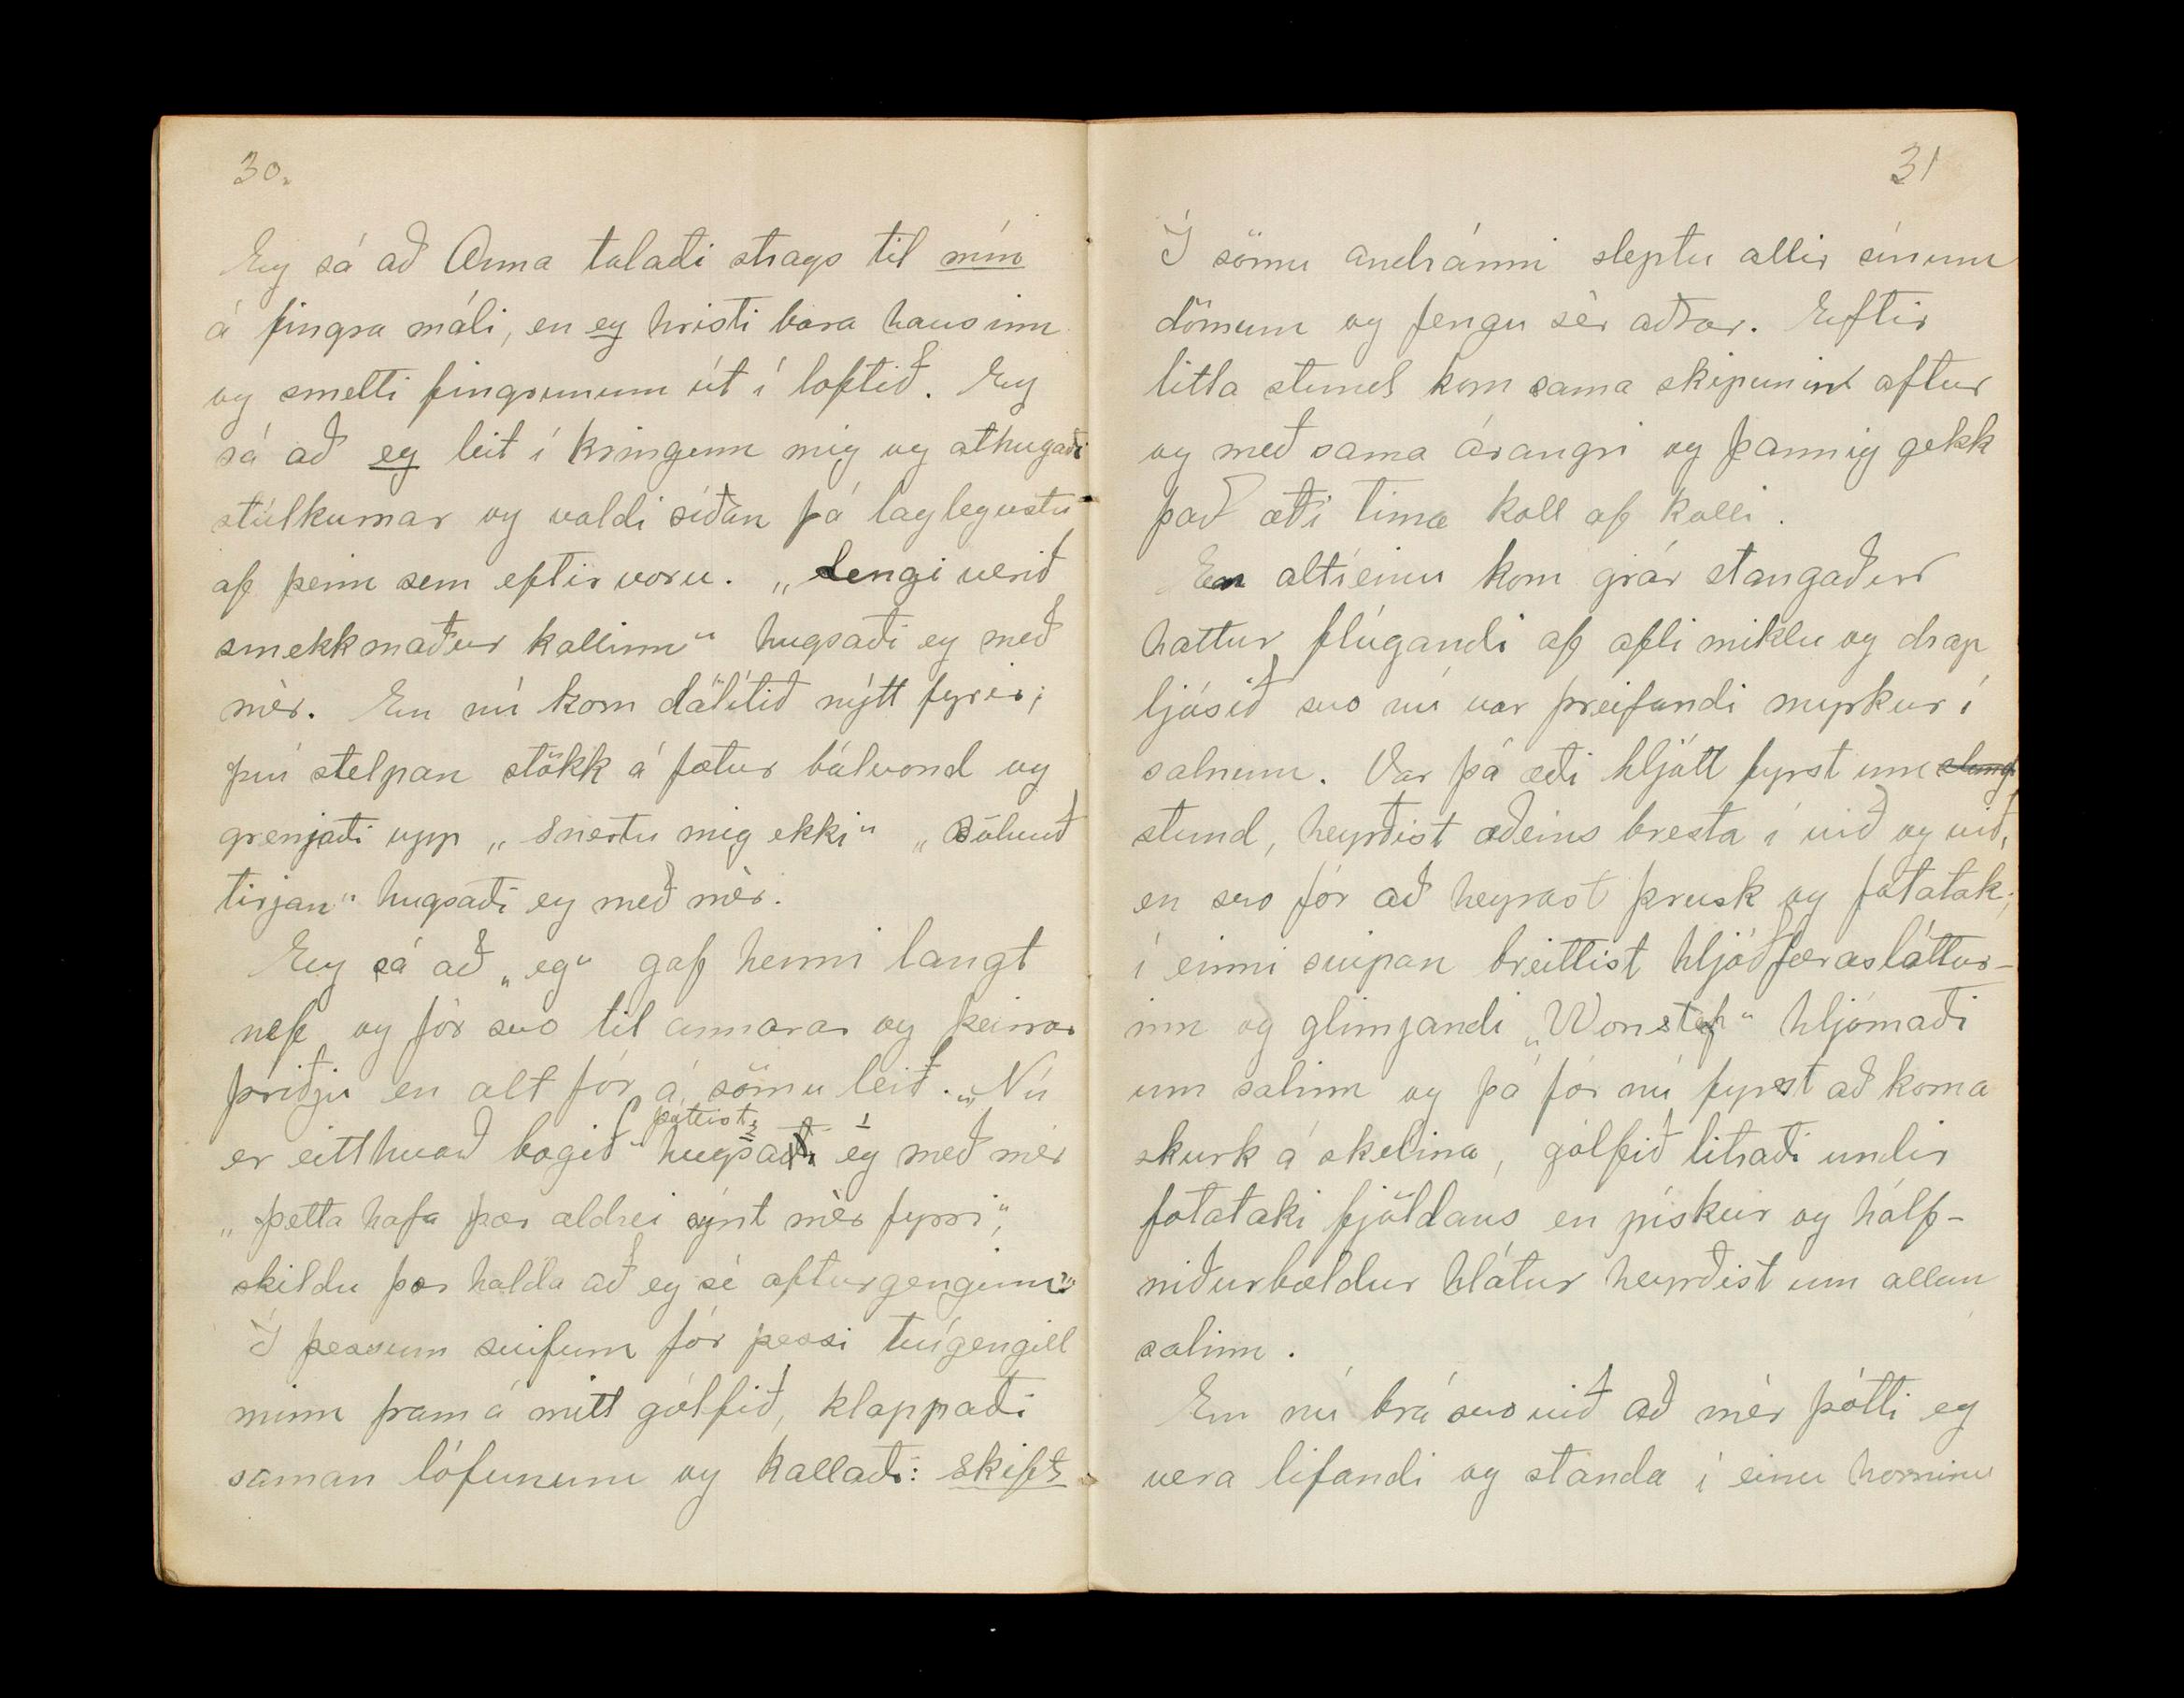 30.
Eg sá að Anna talaði strags til mín
á fingra máli, en eg hristi bara hausinn
og smelti fingrunum út í loftið. Eg
sá að eg leit í kringum mig og athugaði
stúlkurnar og valdi síðan þá laglegustu
af þeim sem eftir voru. „Lengi verið
smekkmaður kallinn“ hugsaði eg með
mér. En nú kom dálítið nýtt fyrir;
því stelpan stökk á fætur bálvond og
grenjaði upp „Snertu mig ekki“ „Bölvuð
tirjan“ hugsaði eg með mér.
Eg sá að „eg“ gaf henni langt
nef og fór svo til annarar og þeirrar
þriðju en alt fór á sömu leið. „Nú
er eitthvað bogið“ hugsaði eg með mér
þóttist
„þetta hafa þær aldrei sýnt mér fyrri“,
skildu þær halda að eg sé afturgenginn“
Í þessum svifum fór þessi tvígengill
minn fram á mitt gólfið, klappaði
saman lófunum og kallaði: skift
31
Í sömu andránni sleptu allir sínum
dömum og fengu sér aðrar. Eftir
litla stund kom sama skipunin aftur
og með sama árangri og þannig gekk
það æði tíma koll af kolli.
En altíeinu kom grár stangaður
hattur fljúgandi af afli miklu og drap
ljósið svo nú var þreifandi myrkur í
salnum. Var þá æði hljótt fyrst um
stund, heyrðist aðeins bresta í við og við,
en svo fór að heyrast þrusk og fótatak;
í einni svipan breittist hljóðfærasláttur-
inn og glimjandi „Wonstep“ hljómaði
um salinn og þá fór nú fyrst að koma
skurk á skelina, gólfið titraði undir
fótataki fjöldans en pískur og hálf-
niðurbældur hlátur heyrðist um allan
salinn.
En nú brá svo við að mér þótti eg
vera lifandi og standa í einu horninu